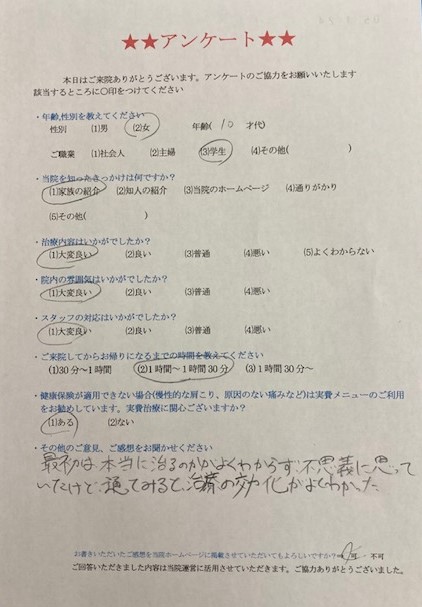 ★★アンケート★★
本日はご来院ありがとうございます。アンケートのご協力をお願いいたします
該当するところに〇印をつけてください
・年齢,性別を教えてください
性別 (1)男 (2)女 年齢( 10 才代)
ご職業 (1)社会人 (2)主婦 (3)学生 (4)その他( )
・当院を知ったきっかけは何ですか?
(1)家族の紹介 (2)知人の紹介 (3)当院のホームページ (4)通りがかり
(5)その他( )
・治療内容はいかがでしたか?
(1)大変良い (2)良い (3)普通 (4)悪い (5)よくわからない
・院内の雰囲気はいかがでしたか?
(1)大変良い (2)良い (3)普通 (4)悪い
・スタッフの対応はいかがでしたか?
(1)大変良い (2)良い (3)普通 (4)悪い
・ご来院してからお帰りになるまでの時間を教えてください
(1)30分～1時間 (2)1時間～1時間30分 (3)1時間30分～
・健康保険が適用できない場合(慢性的な肩こり、原因のない痛みなど)は実費メニューのご利用
をお勧めしています。実費治療に関心ございますか?
(1)ある (2)ない
・その他のご意見、ご感想をお聞かせください
最初は本当に治るのかがよくわからず不思義に思って
いたけど通てみると、治療の効化がよくわかった
お書きいただいたご感想を当院ホームページに掲載させていただいてもよろしいですか? 可 不可
ご回答いただきました内容は当院運営に活用させていただきます。ご協力ありがとうございました。